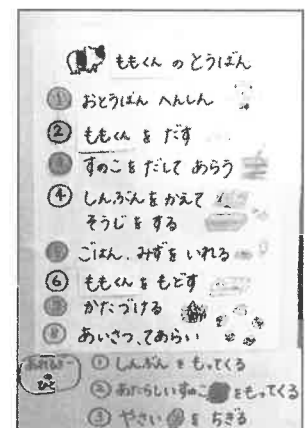 ももくん の とうばん
① おとうばん へんしん
② ももくん を だす
③ すのこ を だして あらう
④ しんぶん を かえて
そうじ を する
⑤ ごはん、みず を いれる
⑥ ももくん を もどす
⑦ かたづける
⑧ あいさつ、てあらい
① しんぶん を もってくる
② あたらしい すのこ を もってくる
③ やさい を ちぎる